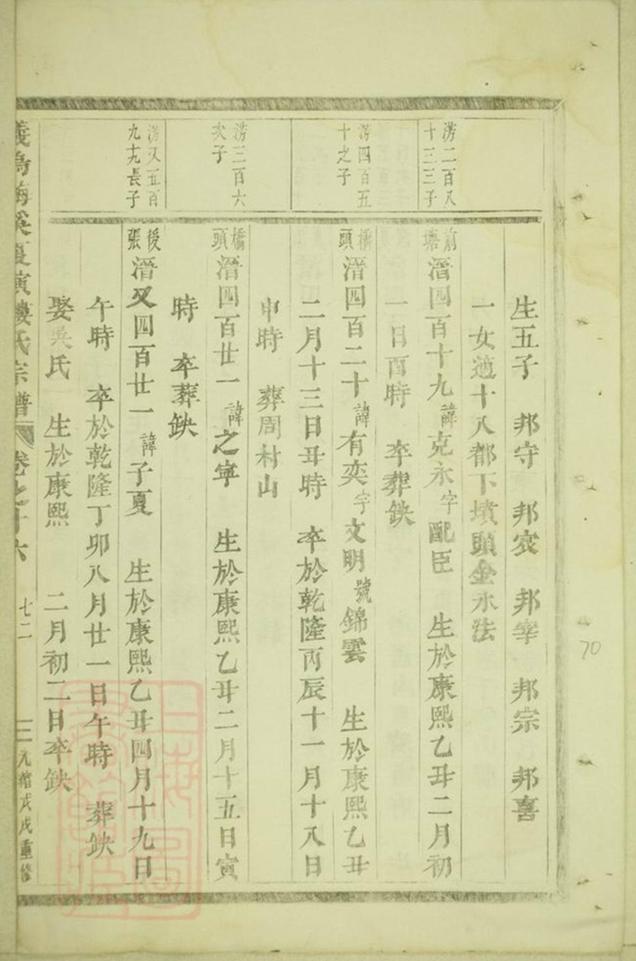 生五子 邦守 邦㝐 邦宰 邦宗 邦喜
一女適十八都下墳頭金永法
滂二百八
十三三子
前塘
溍四百十九諱克永字配臣 生於康熙乙丑二月初
一日酉時 卒葬缺
滂四百五
十之子
橋頭
溍四百二十諱有奕字文明號錦雲 生於康熙乙丑
二月十三日丑時 卒於乾隆丙辰十一月十八日
申時 葬周村山
滂三百六
次子
橋頭
溍四百廿一諱之寧 生於康熙乙丑二月十五日寅
時 卒葬缺
滂又五百
九十九長子
後張
溍又四百廿一諱子夏 生於康熙乙丑四月十九日
午時 卒於乾隆丁卯八月廿一日午時 葬缺
娶吳氏 生於康熙 二月初二日卒缺
義烏 溪夏演樓氏宗譜 卷之十六 七二 光緒戊戌重修
70